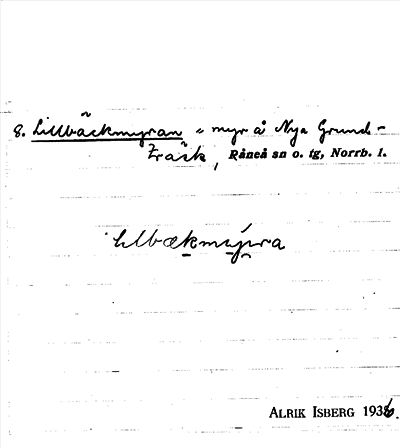 8. Lillbäckmyran = myr å Nya Grund-
träsk, Råneå sn o. tg, Norrb. l.
lılbækmy̆ra
ALRIK ISBERG 1936.